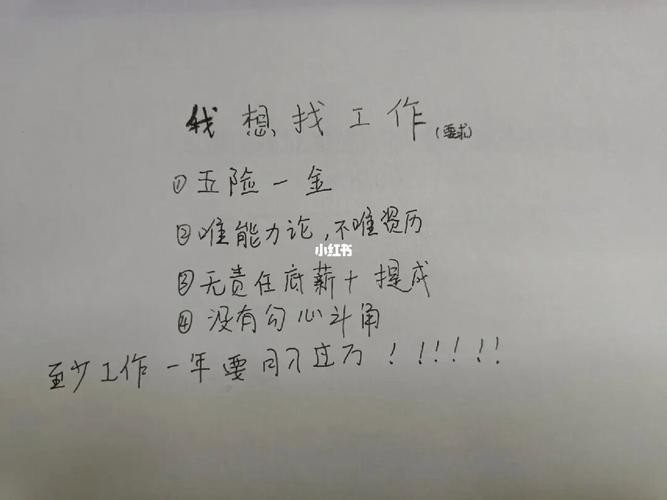 我想找工作(要求)
①五险一金
②唯能力论,不唯资历
小红书
③无责任底薪+提成
④没有勾心斗角
至少工作一年要月入过万!!!!!!